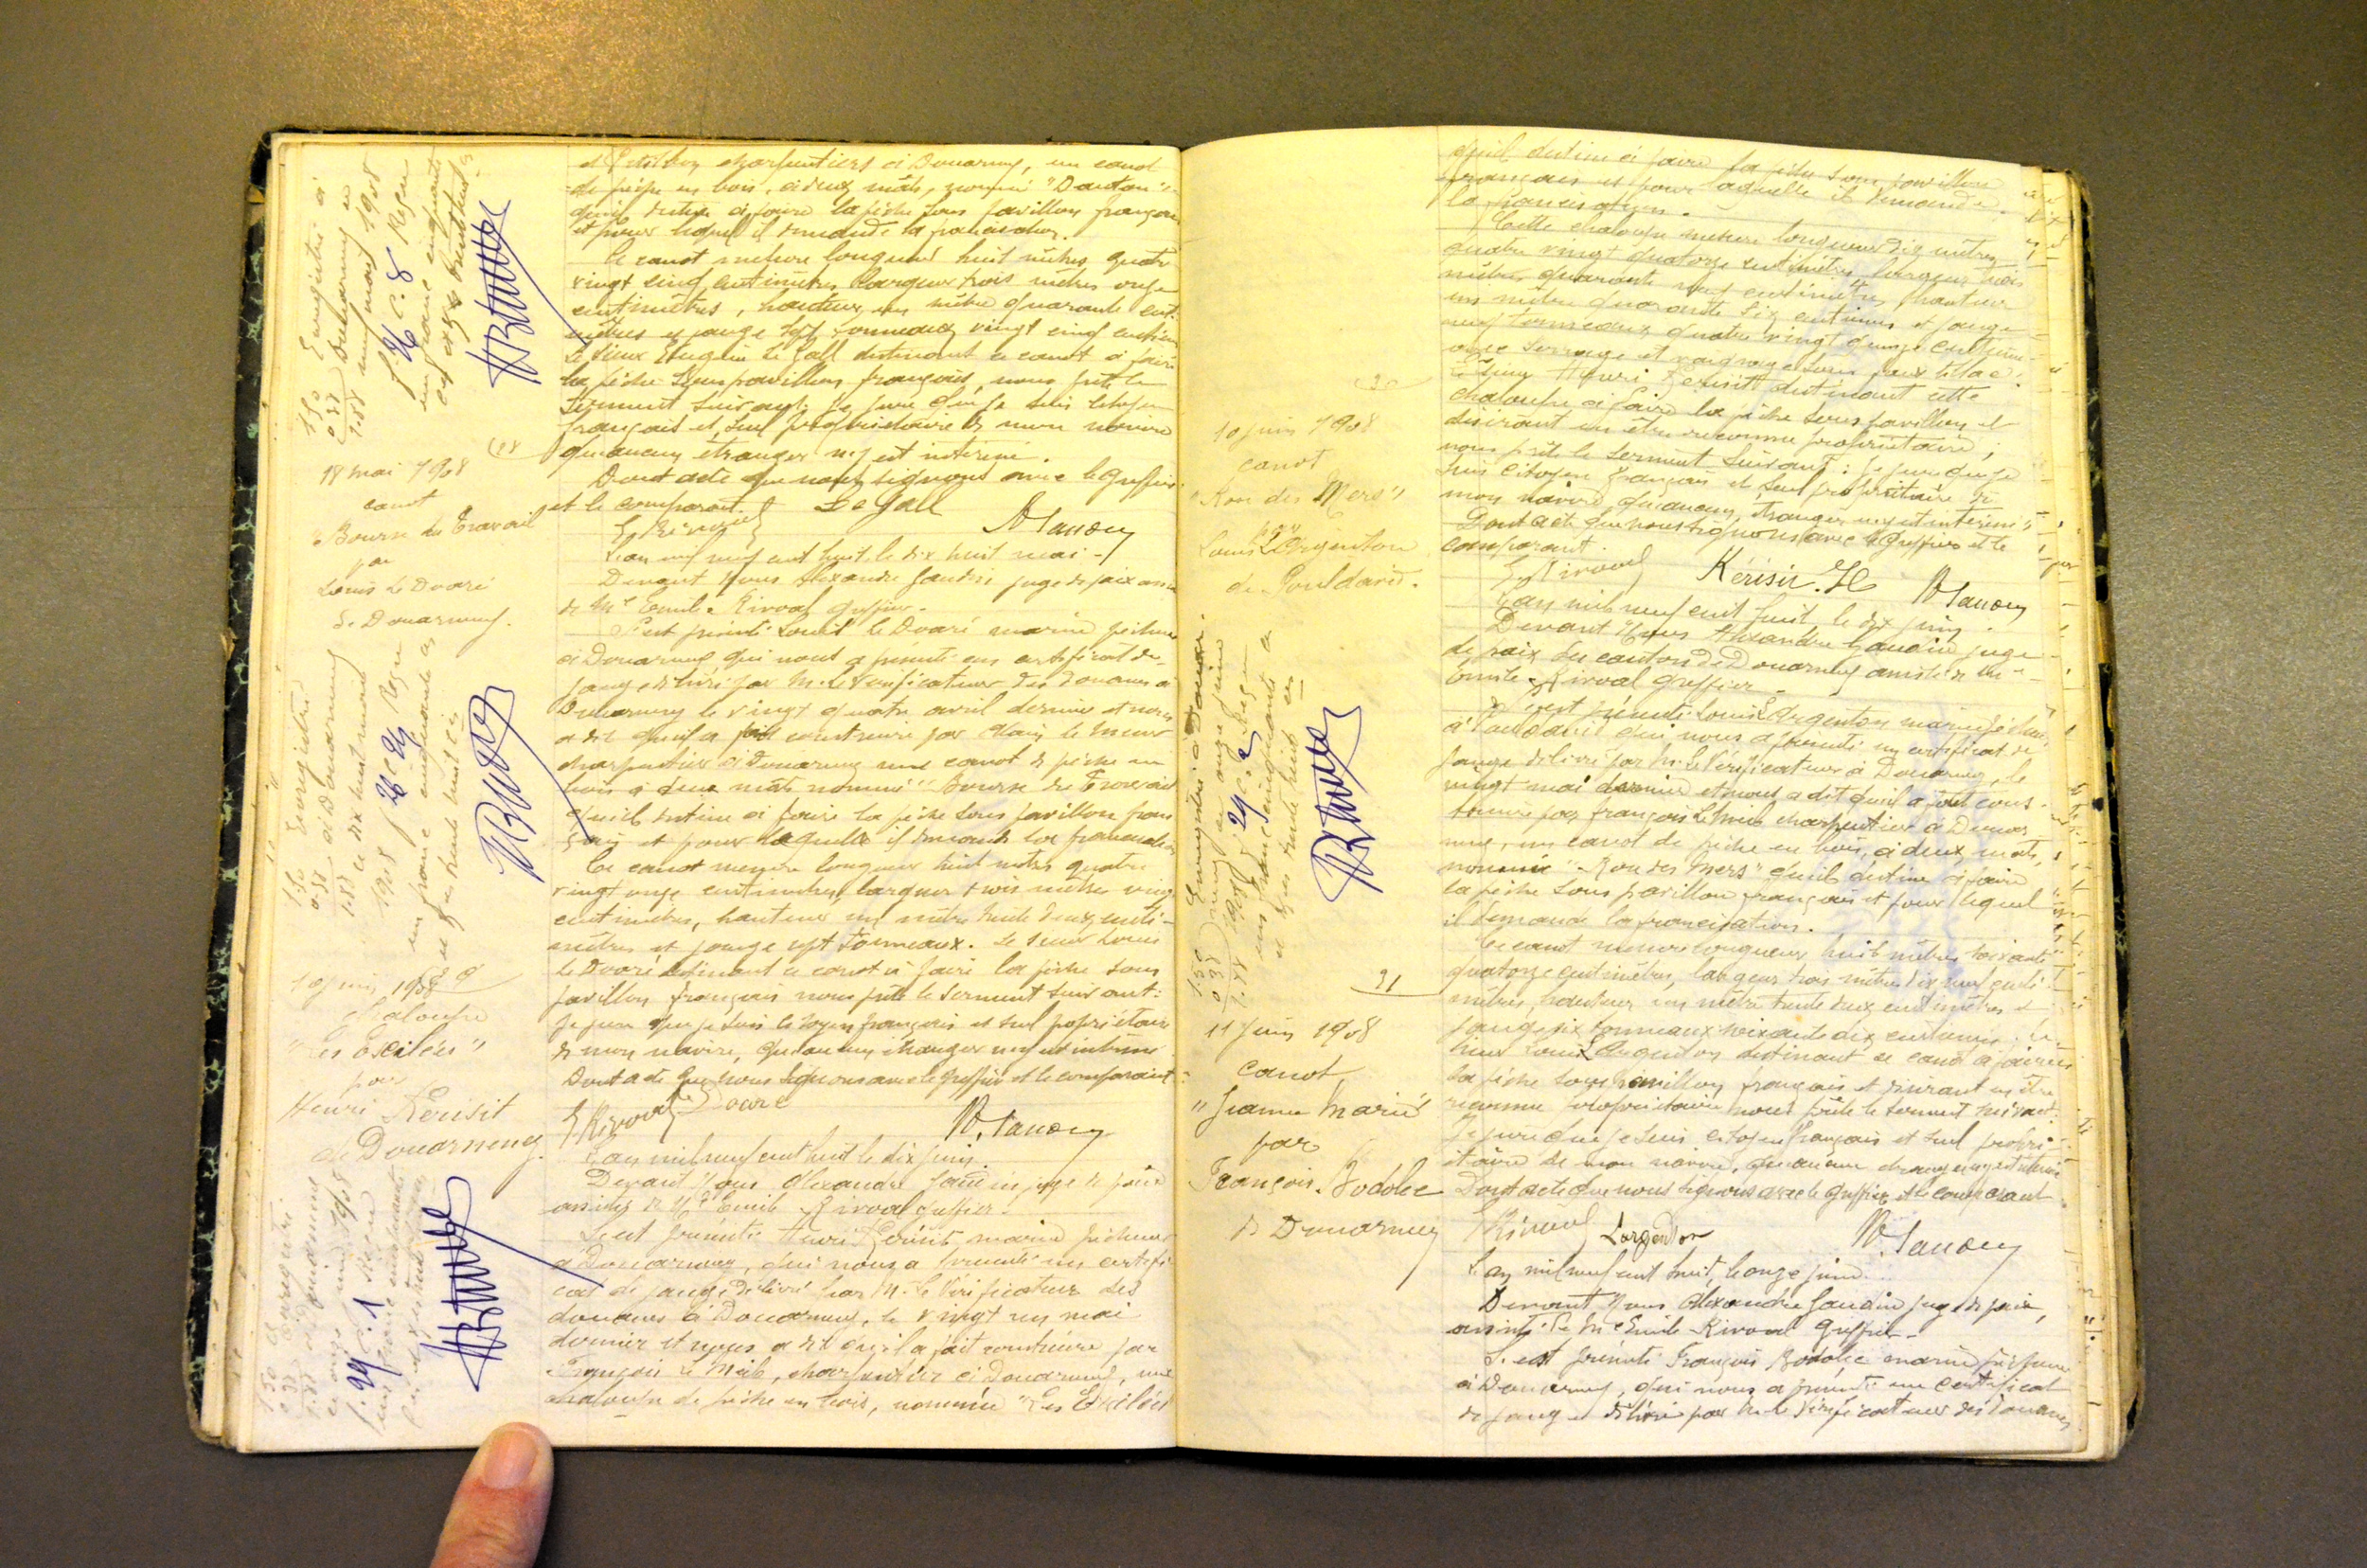 charpentiers à Douarnenez, un canot
de pêche en bois, à deux mâts, nommé "Danton"
qu'il destine à faire la pêche sous pavillon français
et pour lequel il demande la francisation.
Ce canot mesure longueur huit mètres quatre
vingt cinq centimètres largeur trois mètres onze
centimètres, hauteur un mètre quarante centi
mètres et jauge sept tonneaux vingt cinq centièmes
Le sieur Eugène Le Gall destinant ce canot à faire
la pêche sous pavillon français, nous prête le
serment suivant: Je jure que je suis citoyen
français et seul propriétaire de mon navire
qu'aucun étranger n'y est intéressé.
Dont acte que nous signons avec le Greffier
et le comparant.
E. Rivoal Le Gall
L'an mil neuf cent huit le dix huit mai
Devant Nous Alexandre Gaudin juge de paix assisté
de Me Emile Rivoal greffier.
S'est présenté Louis Le Doaré marin pêcheur
à Douarnenez qui nous a présenté un certificat de
jauge délivré par M. le Vérificateur des douanes à
Douarnenez le vingt quatre avril dernier et nous
a dit qu'il a fait construire par Alain le
charpentier à Douarnenez une canot de pêche en
bois à deux mâts nommé "Bourse du Travail"
qu'il destine à faire la pêche sous pavillon fran
çais et pour laquelle il demande la francisation
Ce canot mesure longueur huit mètres quatre
vingt onze centimètres, largeur trois mètres vingt
centimètres, hauteur un mètre trente deux centi-
mètres et jauge sept tonneaux. Le sieur Louis
Le Doaré destinant ce canot à faire la pêche sous
pavillon français nous prête le serment suivant:
Je jure que je suis citoyen français et seul propriétaire
de mon navire, qu'aucun étranger n'y est intéressé
Dont acte que nous signons avec le greffier et le comparant
E. Rivoal Doaré
L'an mil neuf cent huit le dix juin.
Devant Nous Alexandre Gaudin juge de paix
assisté de Me Emile Rivoal greffier.
S'est présenté Henri Kérisit marin pêcheur
à Douarnenez, qui nous a présenté un certifi
cat de jauge délivré par M. le Vérificateur des
douanes à Douarnenez, le vingt un mai
dernier et nous a dit qu'il a fait construire par
François Le Meil, charpentier à Douarnenez, une
chaloupe de pêche en bois, nommée "Les Exilées
Enregistré à
Douarnenez
mai 1908
f. 26 c. 8 Reçu
un franc cinquante
1.50
0.38
1.88
18
18 mai 1908
canot
Bourse du Travail
par
Louis Le Doaré
de Douarnenez.
Enregistré
à Douarnenez
le dix huit mai
1908 f 26 c 4 Reçu
un franc cinquante
et trente huit
1.50
0.38
1.88
10 juin 1908
Chaloupe
"Les Exilées"
par
Henri Kérisit
de Douarnenez.
Enregistré
à Douarnenez
le onze juin 1908
f. 29 c. 1 Reçu
un franc cinquante
1.50
0.38
1.88
qu'il destine à faire la pêche sous pavillon
français et pour laquelle il demande
la francisation.
Cette chaloupe mesure longueur dix mètres
quatre vingt quatorze centimètres, largeur trois
mètres quarante neuf centimètres, hauteur
un mètre quarante six centimes et jauge
neuf tonneaux quatre vingt quinze centièmes
Henri Kérisit destinant cette
chaloupe à faire la pêche sous pavillon et
désirant en être reconnu propriétaire,
nous prête le serment suivant: je jure que je
suis citoyen français et seul propriétaire de
mon navire qu'aucun étranger n'y est intéressé
Dont acte que nous signons avec le Greffier et le
comparant.
E. Rivoal Kérisit. H
L'an mil neuf cent huit, le dix juin.
Devant Nous Alexandre Gaudin juge
de paix du canton de Douarnenez assisté de Me
Emile Rivoal greffier
S'est présenté Louis L'Argenton marin pêcheur
à Pouldavid qui nous a présenté un certificat de
jauge délivré par M. le Vérificateur à Douarnenez, le
vingt mai dernier et nous a dit qu'il a fait cons-
truire par François Le Meil charpentier à Douar
nenez, un canot de pêche en bois, à deux mâts,
nommé "Roi des Mers" qu'il destine à faire
la pêche sous pavillon français et pour lequel
il demande la francisation.
Ce canot mesure longueur huit mètres soixante
quatorze centimètres, largeur trois mètres dix neuf centi
mètres, hauteur un mètre trente deux centimètres et
jauge six tonneaux soixante dix centièmes. Le
sieur Louis L'Argenton destinant ce canot à faire
la pêche sous pavillon français et désirant en être
reconnu propriétaire nous prête le serment suivant:
Je jure que je suis citoyen français et seul propri
étaire de mon navire, qu'aucun étranger n'y est intéressé
Dont acte que nous signons avec le greffier et le comparant
E. Rivoal Largenton
L'an mil neuf cent huit, le onze juin.
Devant Nous Alexandre Gaudin juge de paix,
assisté de Me Emile Rivoal Greffier
S'est présenté François Bodolec marin pêcheur
à Douarnenez, qui nous a présenté un certificat
de jauge délivré par M. le Vérificateur des Douanes
20
10 juin 1908
canot
"Roi des Mers"
par
Louis L'Argenton
de Pouldavid.
Enregistré à Douar
nenez le onze juin
1908 f 29 c. 2 Reçu
un franc cinquante
et trente huit ces
1.50
0.38
1.88
21
11 Juin 1908
canot
"Jeanne Marie"
par
François Bodolec
de Douarnenez